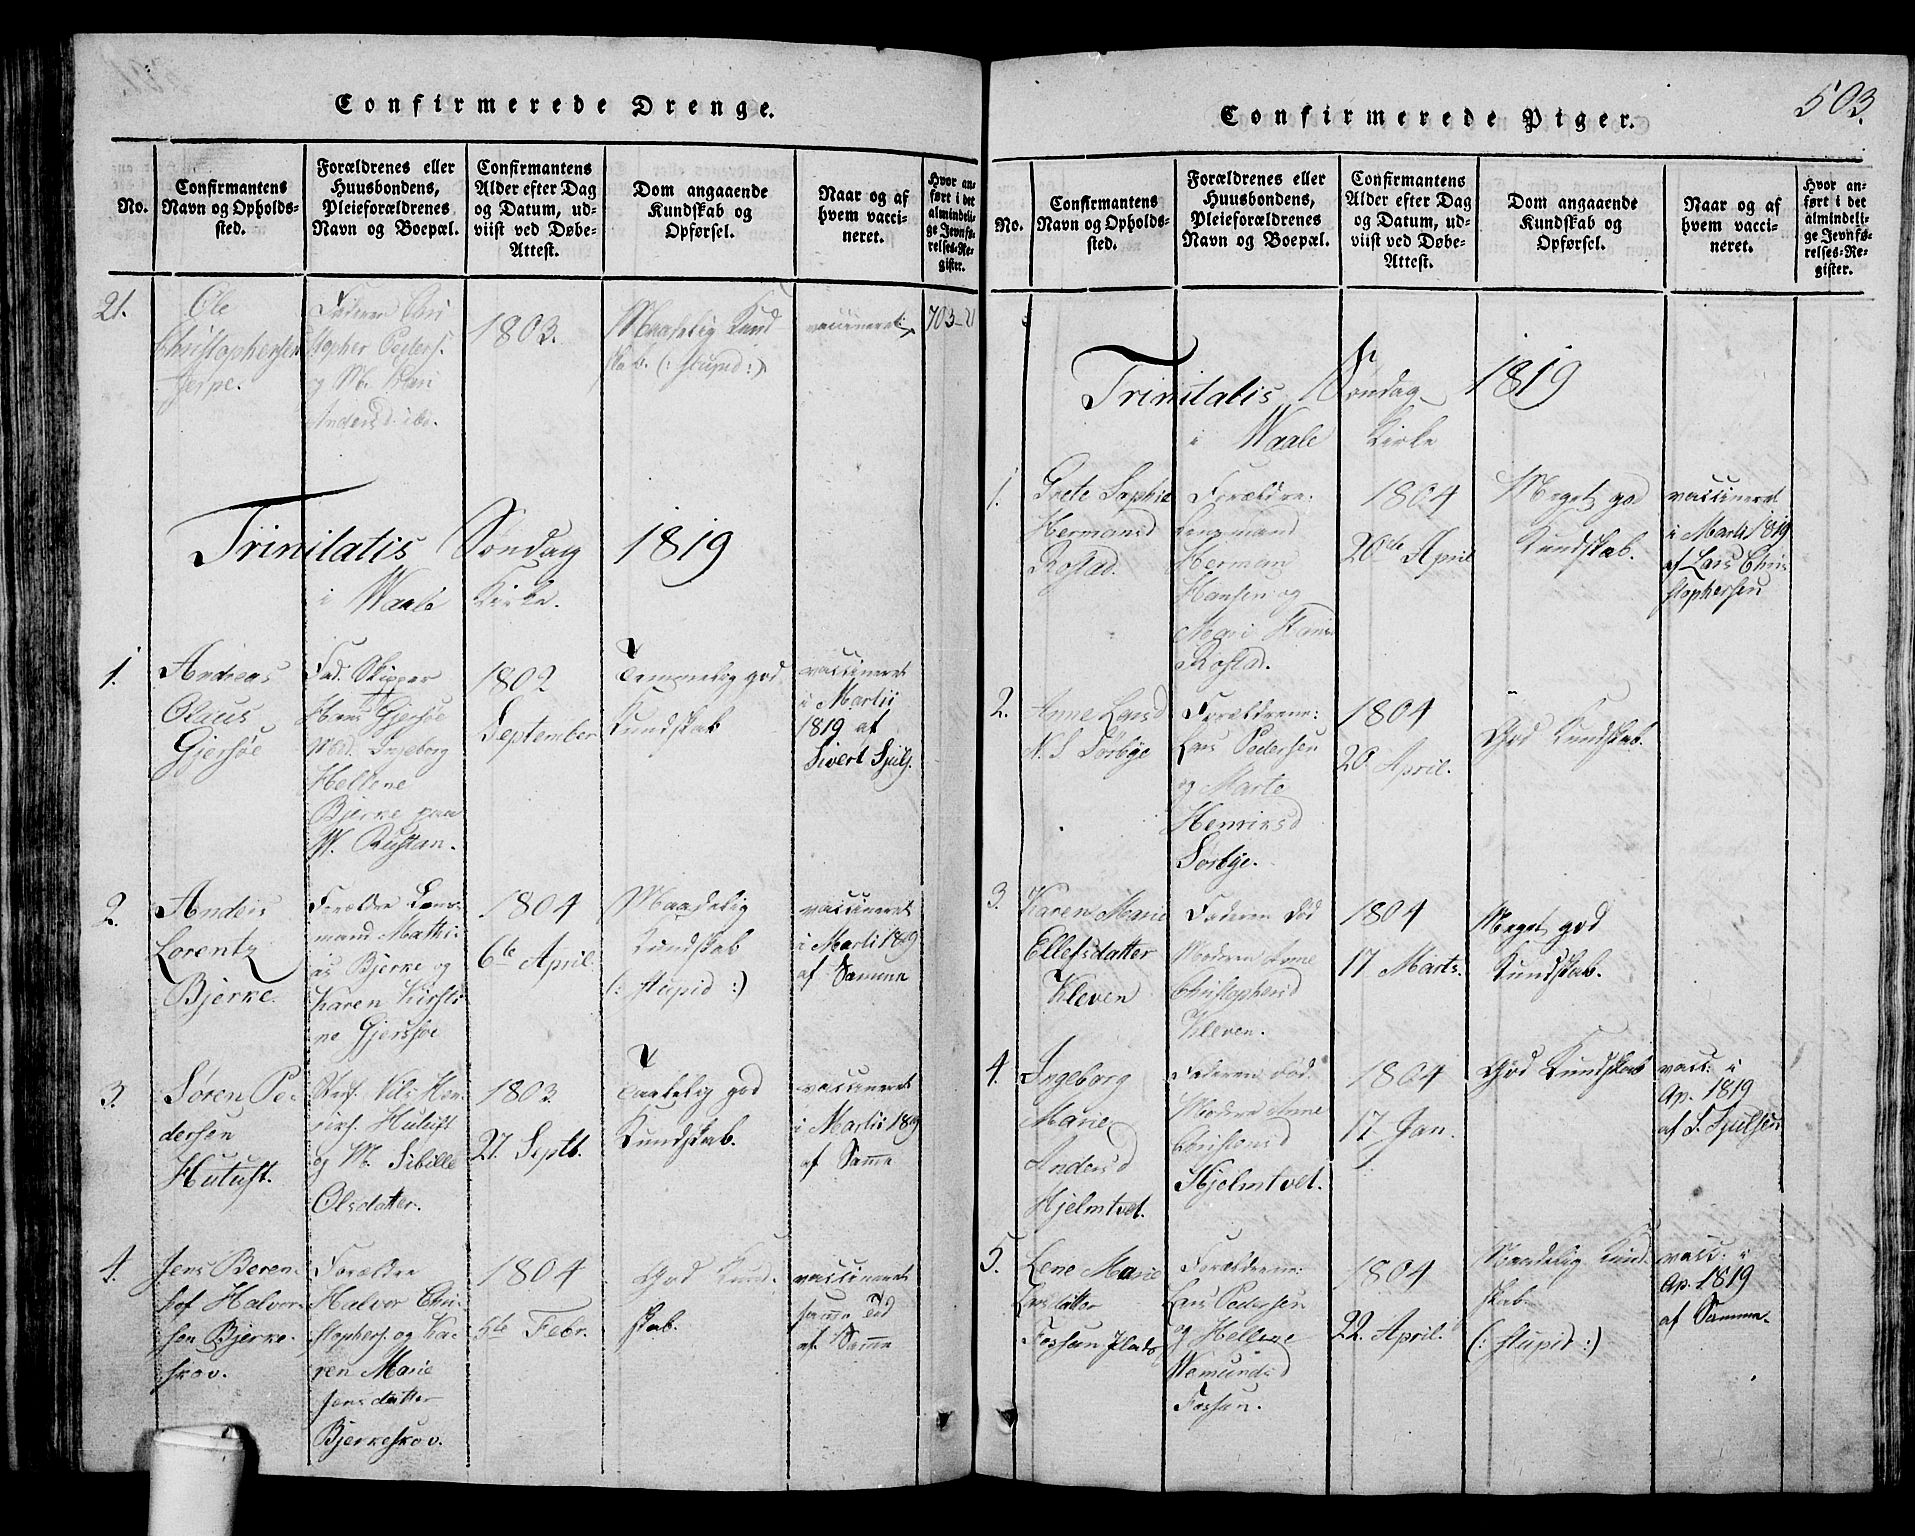 Confirmerede Drenge.
No.
Confirmantens
Navn og Opholds-
sted.
Forældrenes eller
Huusbondens,
Pleieforældrenes
Navn og Boepæl.
Confirmantens
Alder efter Dag
og Datum, ud-
viist ved Døbe-
Attest.
Dom angaaende
Kundskab og
Opførsel.
Naar og af
hvem vacci-
neret.
Hvor an-
ført i det
almindeli-
ge Jevnfø-
relses-Re-
gister.
21.
Ole
Christophersen
Jerpe.
Faderen Chri
stopher Peders.
og M. Kari
Andersd. ibo.
1803.
Maadelig Kund
skab. (: stupid :)
vaccineret
Trinitatis Søndag 1819
i Waale Kirke.
1.
Andreas
Olaus
Gjersøe
Fad. Skipper
Hans Gjersøe
Mod. Ingeborg
Hellene
Bjerke paa
W. Rustan.
1802
September
Temmelig god
Kundskab
vaccineret
i Martii
1819 af
Sivert Sjuls.
2.
Anders
Lorentz
Bjerke.
Forældre Lens-
mand Matthi-
as Bjerke og
Karen Kirsti-
ne Gjersøe
1804
6te April.
Maadelig
Kundskab
(: stupid :)
vaccineret
i Martii 1819
af Samme
3.
Søren Pe-
dersen
Hutuft.
Nils Hen-
riks. Hutuft
og M. Sibille
Olsdatter.
1803
27. Septb.
Taalelig god
Kundskab.
vaccineret
i Martii 1819
af Samme
4.
Jens Beren-
hof Halvor-
sen Bjerke-
skov.
Forældre
Halvor Chri-
stophers. og Ka-
ren Marie
Jensdatter
Bjerkeskov.
1804
5te Febr.
God Kund-
skab.
vaccineret
samme Tid
af Samme
503.
Confirmerede Piger.
No.
Confirmantens
Navn og Opholds-
sted.
Forældrenes eller
Huusbondens,
Pleieforældrenes
Navn og Boepæl.
Confirmantens
Alder efter Dag
og Datum, ud-
viist ved Døbe-
Attest.
Dom angaaende
Kundskab og
Opførsel.
Naar og af
hvem vacci-
neret.
Hvor an-
ført i det
almindeli-
ge Jevnfø-
relses-Re-
gister.
Trinitatis Søndag 1819
i Waale Kirke
1.
Grete Sophie
Hermansd
Rostad.
Forældre:
Lensmand
Herman
Hansen og
Mari Hansd
Rostad.
1804
20de April
Meget god
Kundskab.
vaccineret
i Martii 1819
af Lars Chri
stophersen
2.
Anne Larsd
N. S Sørbye
Forældrene:
Lars Pedersen
og Marte
Henriksd
Sørbye.
1804
20 April.
God Kundskab.
3.
Karen Marie
Ellefsdatter
Kleven
Faderen død
Moderen Anne
Christophersd
Kleven.
1804
17 Marts.
Meget god
Kundskab.
4.
Ingeborg
Marie
Andersd
Hjelmtvet.
Faderen død.
Moderen Anne
Hjelmtvet.
1804
17 Jan.
God Kundskab
vacc: i
Ap. 1819
af S. Sjulsen
5.
Lene Marie
Larsdatter
Fossan Plads
Forældrene:
Lars Pedersen
og Hellene
Wemundsd
Fossan.
1804
22. April.
Maadelig Kund
skab.
(: stupid :)
vacc: i
Ap. 1819
af Samme.